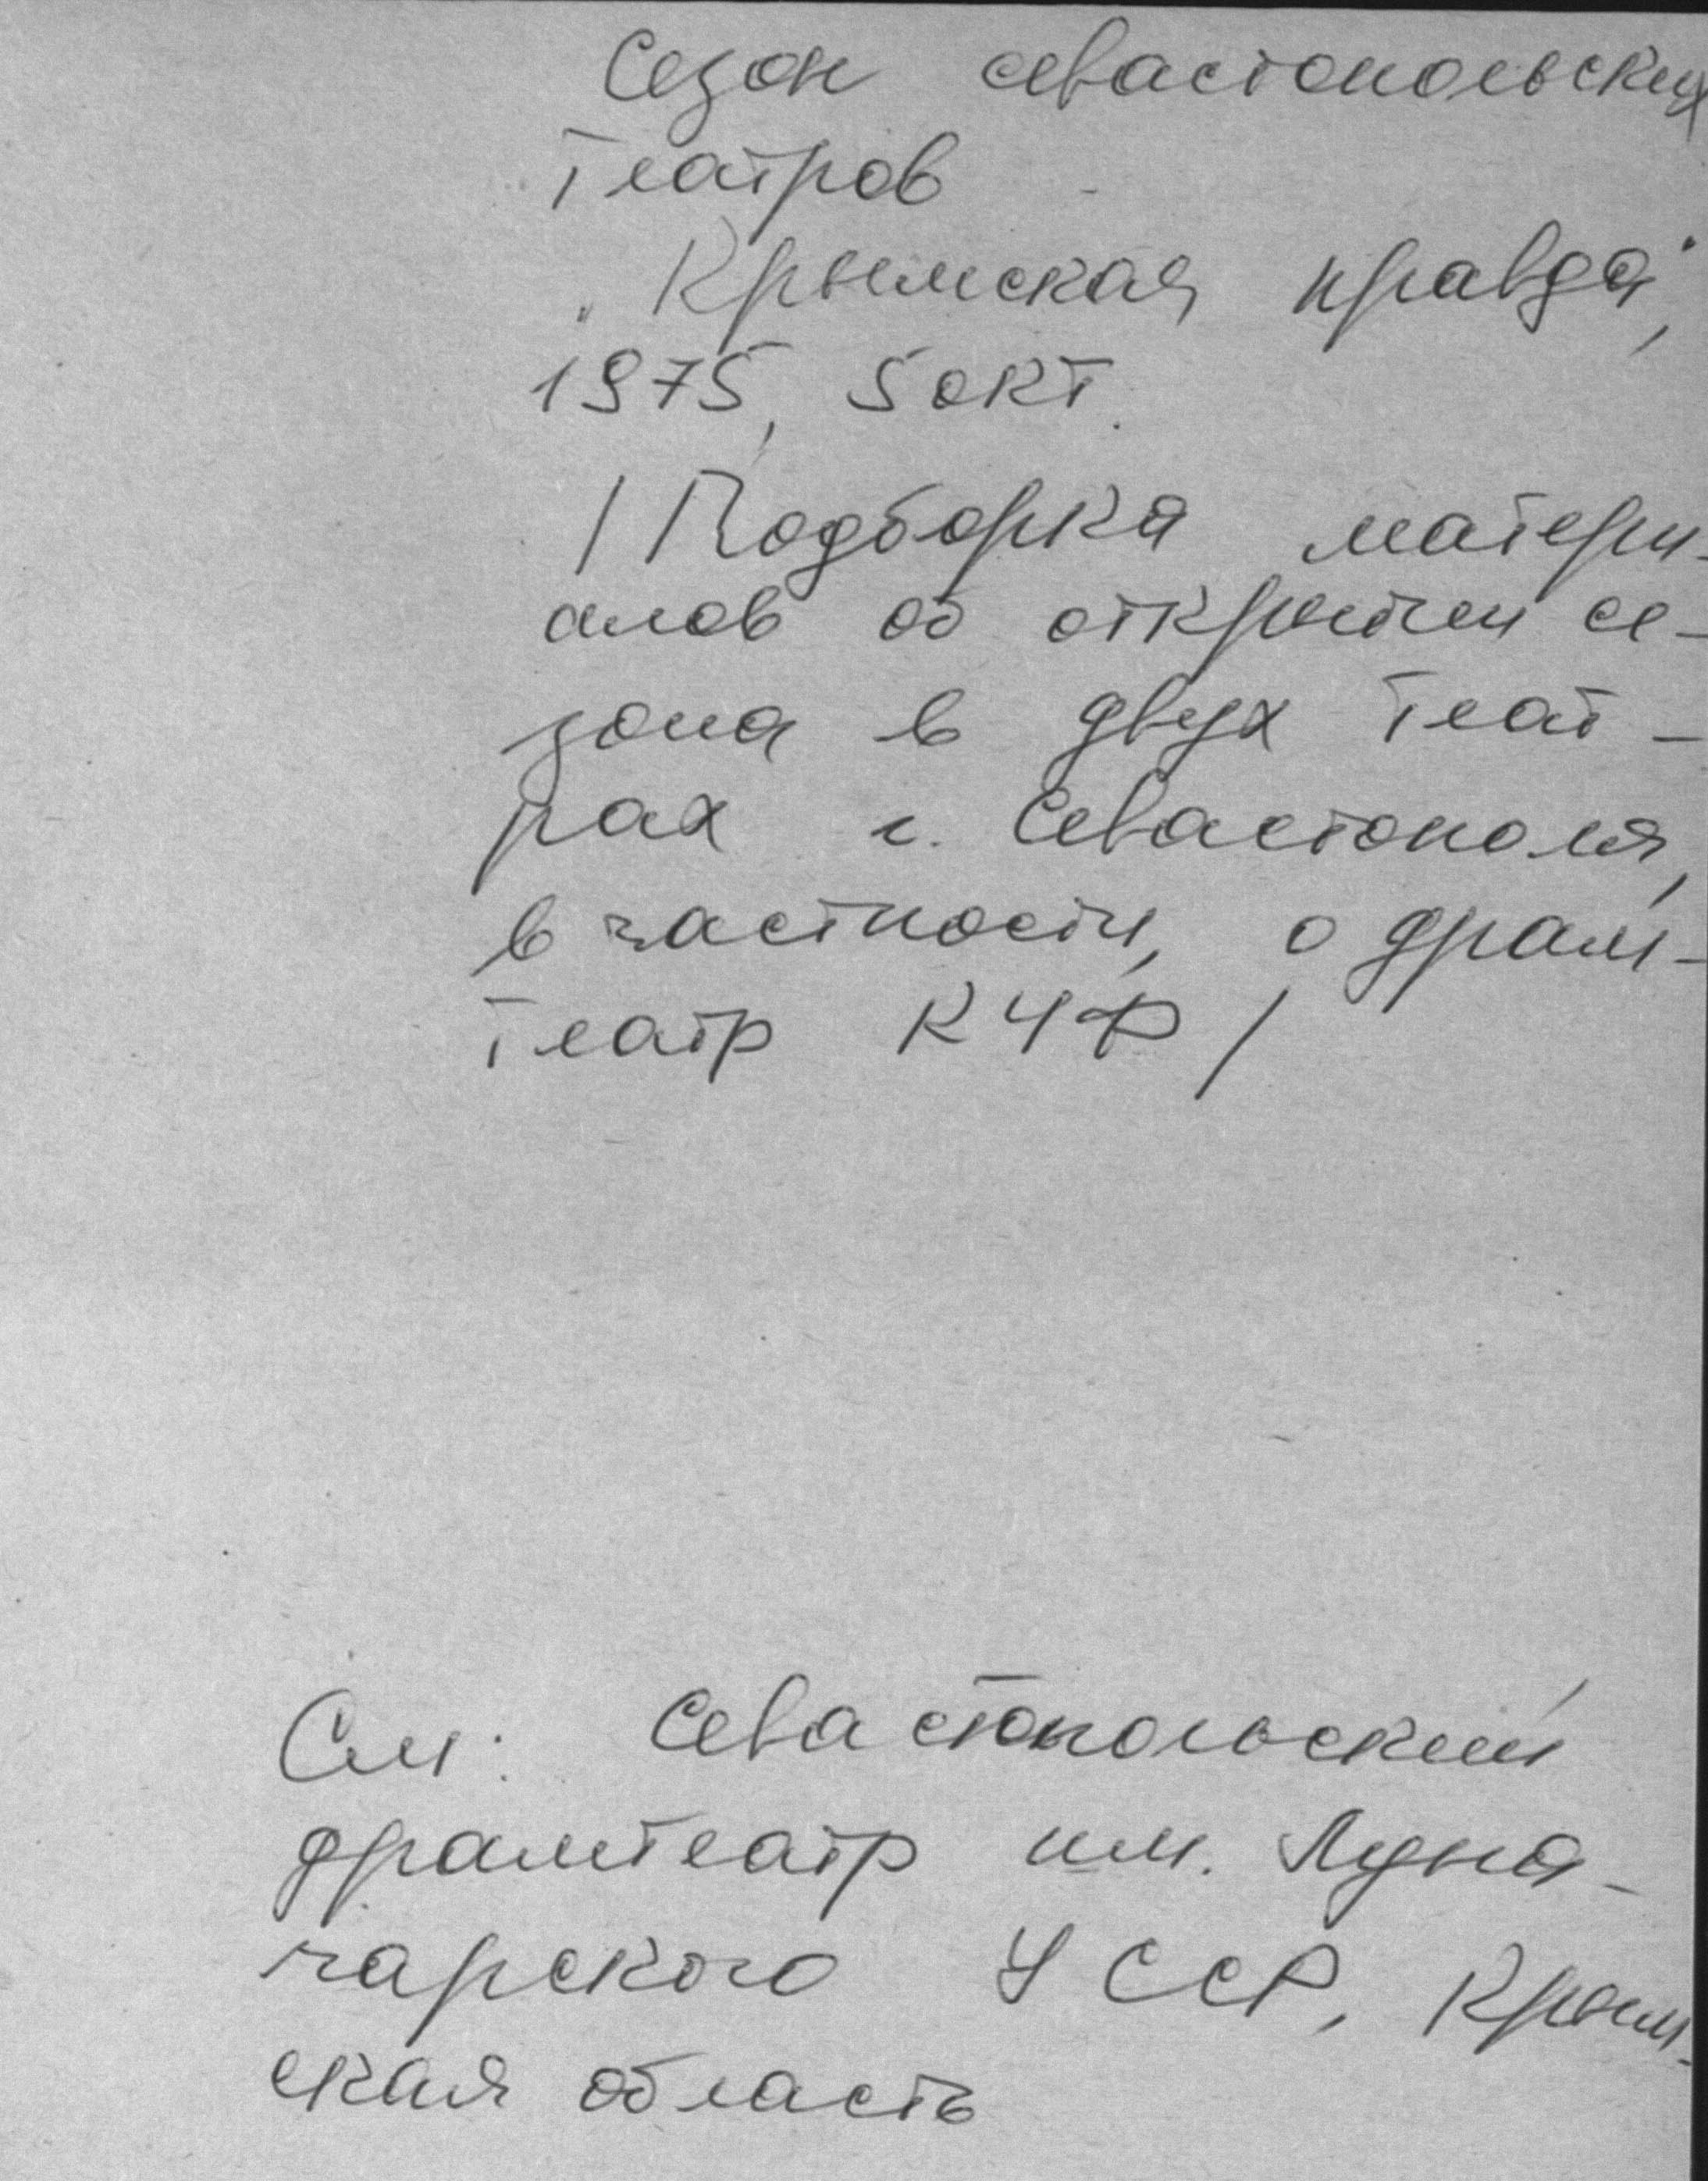 Сезон севастопольских
театров
"Крымская правда",
1975, 5 окт.
/Подборка матери-
алов об открытии се-
зона в двух теат-
рах г. Севастополя,
в частности, о драм-
театр КЧФ/
См: Севастопольский
драмтеатр им. Луна-
чарского УССР, Крым-
ская область